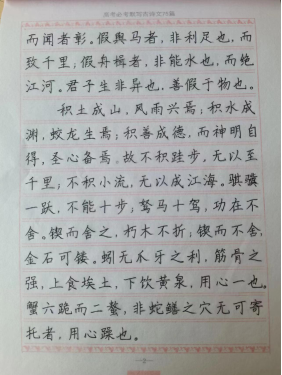 高考必考默写古诗文六篇
而闻者彰。假舆马者，非利足也，而
致千里；假舟楫者，非能水也，而绝
江河。君子生非异也，善假于物也。
积土成山，风雨兴焉；积水成
渊，蛟龙生焉；积善成德，而神明自
得，圣心备焉。故不积跬步，无以至
千里；不积小流，无以成江海。骐骥
一跃，不能十步；驽马十驾，功在不
舍。锲而舍之，朽木不折；锲而不舍，
金石可镂。蚓无爪牙之利，筋骨之
强，上食埃土，下饮黄泉，用心一也。
蟹六跪而二螯，非蛇鳝之穴无可寄
托者，用心躁也。